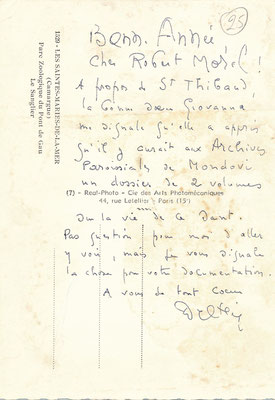 95
Bonne Année
Cher Robert Morel !
A propos de St Thibaud,
la bonne dœu Giovanna
me signale qu'elle a appris
qu'il y aurait aux Archives
Paroissiales de Mondovi
un dossier de 2 volumes
(7) - Real-Photo - Cie des Arts Photomécaniques
44, rue Letellier - Paris (15e)
sur la vie de ce Saint.
Pas question pour moi d'aller
y voir, mais je vous signale
la chose pour votre documentation.
A vous de tout cœur
Delteil
1529 - LES SAINTES-MARIES-DE-LA-MER
(Camargue)
Parc Zoologique du Pont de Gau
Le Sanglier